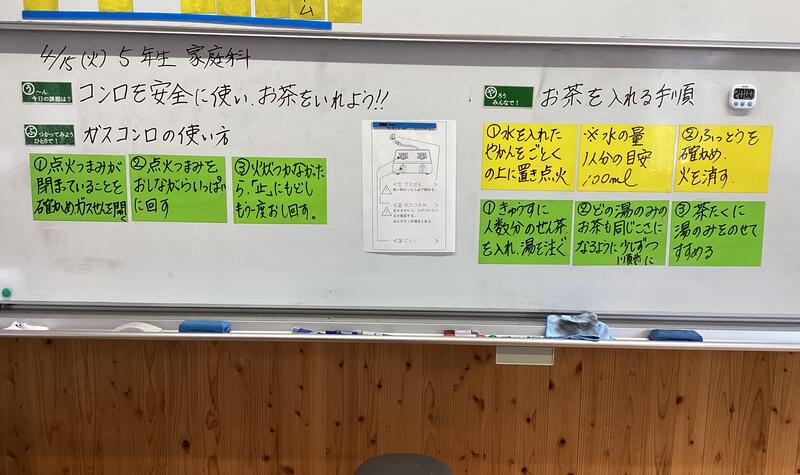 ム
4/15(火) 5年生 家庭科
う～ん
今日の課題は?
コンロを安全に使い、お茶をいれよう!!
ぶつかってみよう
ひとりで!
ガスコンロの使い方
①点火つまみが
閉まっていることを
確かめガスせんを開く
②点火つまみを
おしながらいっぱい
に回す
③火がつかなかった
ら、「止」にもどし
もう一度おし回す。
<① ガスせん>
<② 点火つまみ>
<③ ごとく>
やろう
みんなで!
お茶を入れる手順
①水を入れた
やかんをごとく
の上に置き点火
※水の量
1人分の目安
100ml
②ふっとうを
確かめ、
火を消す.
①きゅうすに
人数分のせん茶
を入れ、湯を注ぐ
②どの湯のみの
お茶も同じこさに
なるように少しずつ
順番に
③茶たくに
湯のみをのせて
すすめる